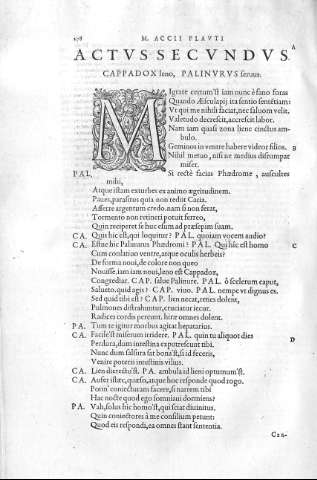 M. ACCII PLAVTI
ACTVS SECVNDVS.
A
CAPPADOX leno, PALINVRVS seruus.
MIgrare certum'st iam nunc è fano foras
Quando Æsculapij ita sentio sententiam:
Vt qui me nihili faciat, nec saluom velit.
Valetudo decrescit, accrescit labor.
Nam iam quasi zona liene cinctus am-
bulo.
Geminos in ventre habere videor filios. B
Nihil metuo, nisi ne medius disrumpar
miser.
PAL. Si rectè facias Phædrome, auscultes
mihi,
Atque istam exturbes ex animo ægritudinem.
Paues, parasitus quia non rediit Caria.
Afferre argentum credo. nam si non ferat,
Tormento non retineri potuit ferreo,
Quin reciperet se huc esum ad præsepem suam.
CA. Quis hic est, qui loquitur? PAL. quoiam vocem audio?
CA. Estne hic Palinurus Phædromi? PAL. Quis hic est homo C
Cum conlatiuo ventre, atque oculis herbeis?
De forma noui, de colore non queo
Nouisse. iam iam noui, leno est Cappadox,
Congrediar. CAP. salue Palinure. PAL. ô scelerum caput,
Salueto, quid agis? CAP. viuo. PAL. nempe vt dignus es.
Sed quid tibi est? CAP. lien necat, renes dolent,
Pulmones distrahuntur, cruciatur iecur.
Radices cordis pereunt. hiræ omnes dolent.
PA. Tum te igitur morbus agitat hepatarius.
CA. Facile'st miserum irridere. PAL. quin tu aliquot dies
D
Perdura, dum intestina exputrescunt tibi.
Nunc dum salsura sat bona'st, si id feceris,
Venire poteris intestinis vilius.
CA. Lien dierectu'st. PA. ambula id lieni optumum'st.
CA. Aufer istæc, quæso, atque hoc responde quod rogo.
Potin' coniecturam facere, si narrem tibi
Hac nocte quod ego somniaui dormiens?
PA. Vah, solus hic homo'st, qui sciat diuinitus.
Quin coniectores à me consilium petunt:
Quod eis respondi, ea omnes stant sententia.